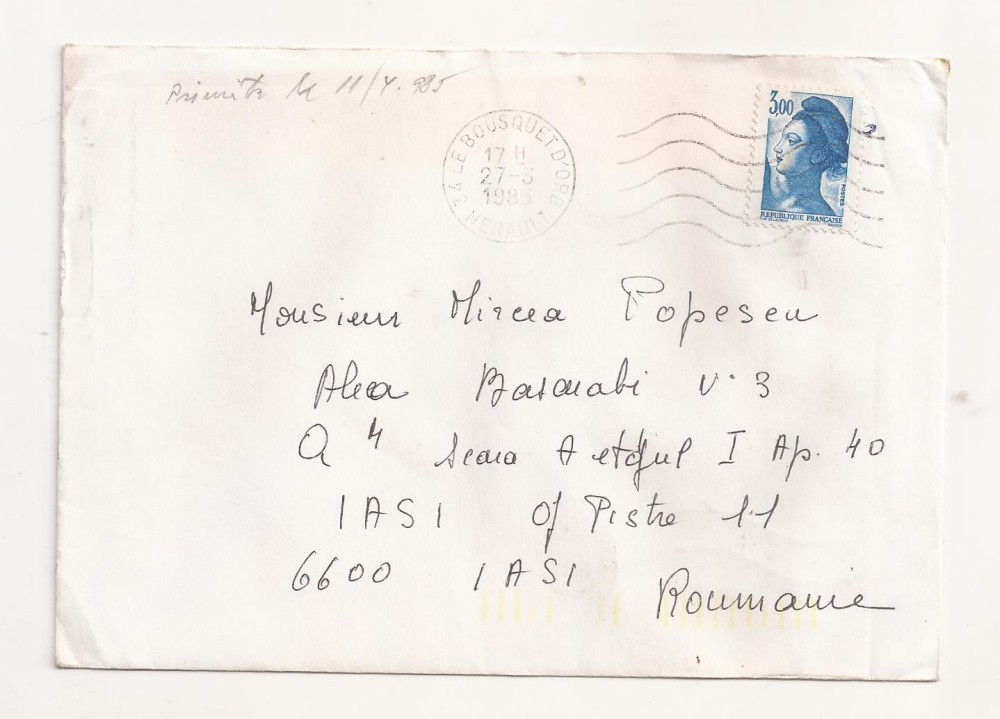 Primită la 11/4.985
34 LE BOUSQUET D'ORB
17 H
27-3
1985
HERAULT
3,00
POSTES
REPUBLIQUE FRANÇAISE
Monsieur Mircea Popescu
Alea Basarabi n° 3
Q 4 Scara A etajul I Ap. 40
IASI Of Pistre 11
6600 IASI
Roumanie